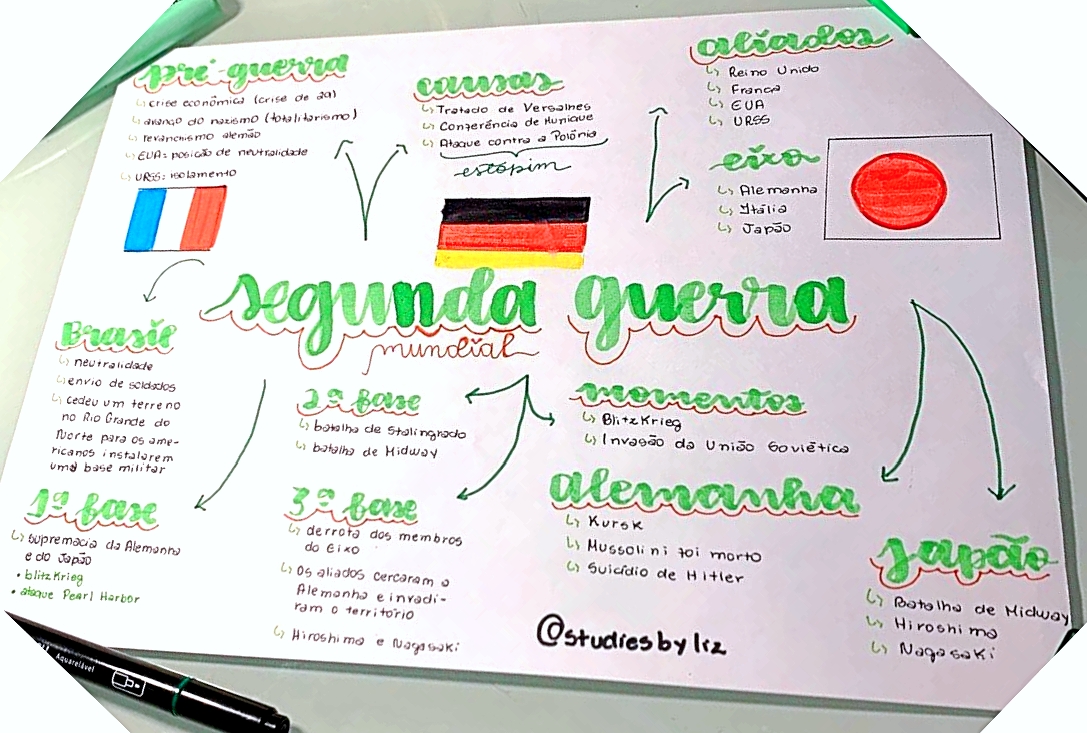 pré-guerra
crise econômica (crise de 29)
avanço do nazismo (totalitarismo)
revanchismo alemão
EUA: posição de neutralidade
URSS: isolamento
causas
Tratado de Versalhes
Conferência de Munique
Ataque contra a Polônia
estopim
aliados
Reino Unido
França
EUA
URSS
eixo
Alemanha
Itália
Japão
segunda guerra
mundial
Brasil
neutralidade
envio de soldados
cedeu um terreno
no Rio Grande do
Norte para os ame-
ricanos instalarem
uma base militar
1ª fase
supremacia da Alemanha
e do Japão
• blitzkrieg
• ataque Pearl Harbor
2ª fase
batalha de Stalingrado
batalha de Midway
3ª fase
derrota dos membros
do Eixo
Os aliados cercaram a
Alemanha e invadi-
ram o território
Hiroshima e Nagasaki
momentos
Blitzkrieg
Invasão da União Soviética
alemanha
Kursk
Mussolini foi morto
Suicídio de Hitler
japão
Batalha de Midway
Hiroshima
Nagasaki
@studiesbyliz
Aquarelável